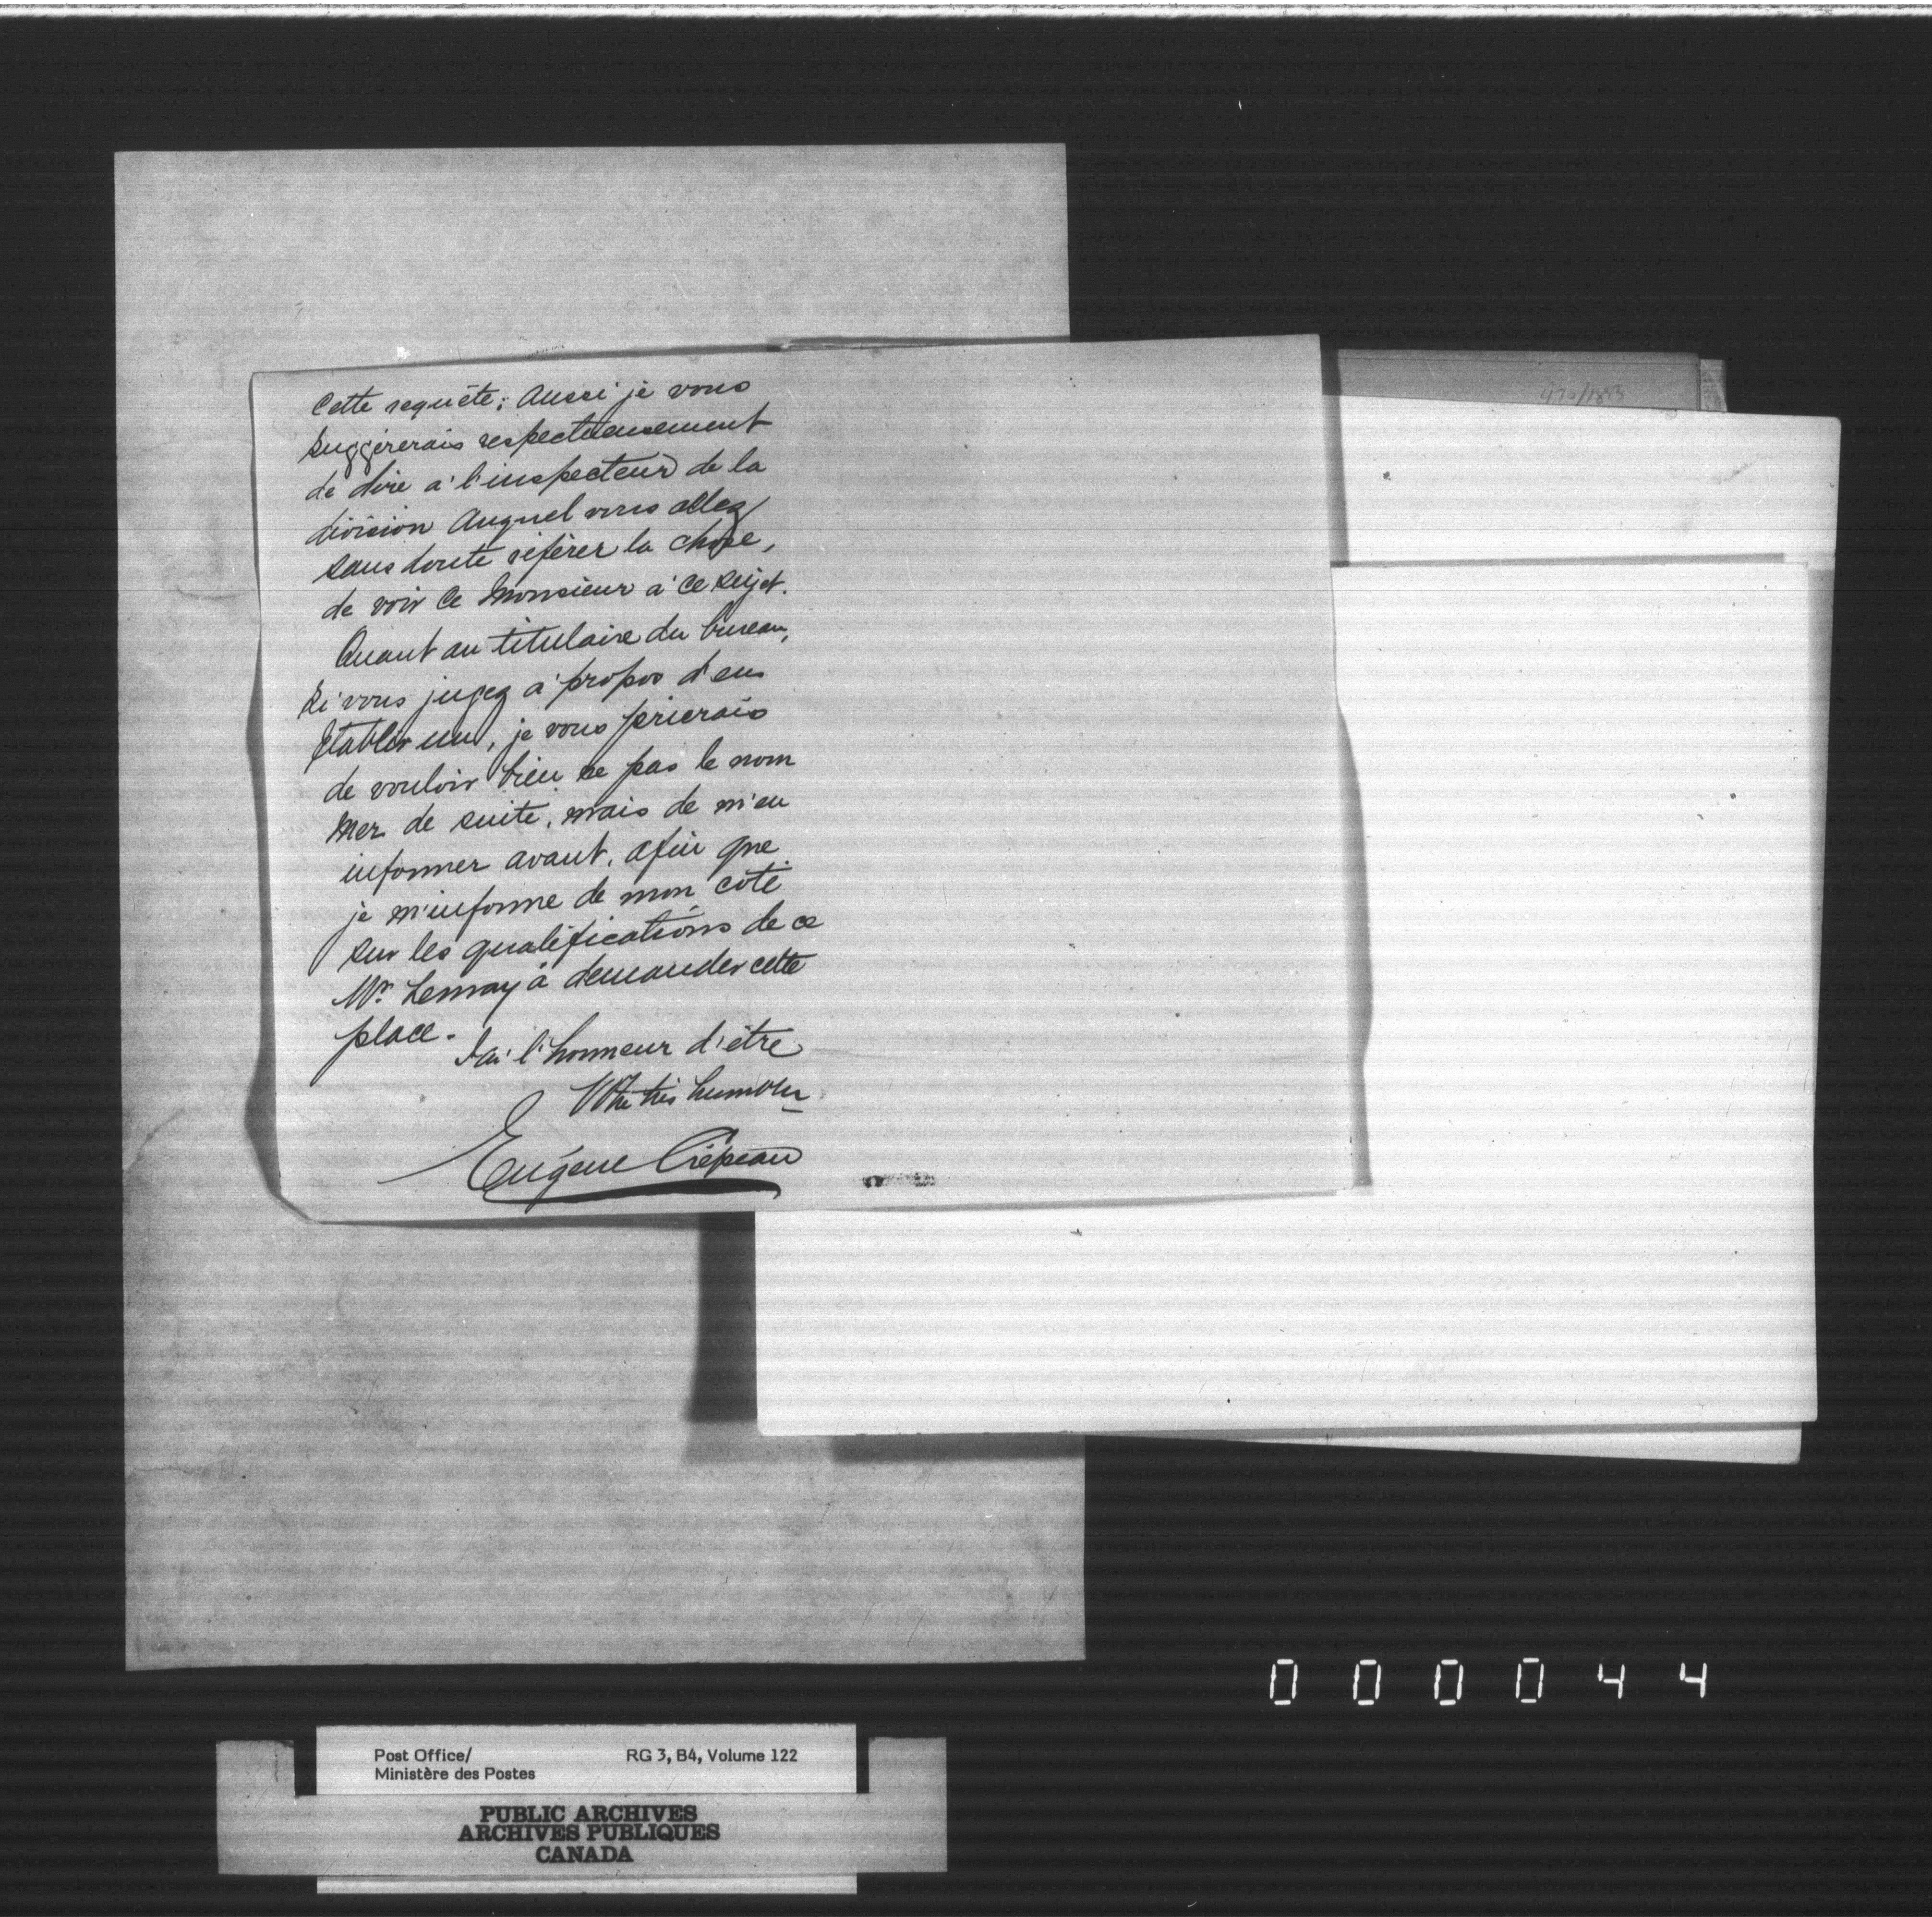 Cette requête; Aussi je vous
suggérerais respectueusement
de dire à l'inspecteur de la
division Auquel vous allez
sans doute référer la chose,
de voir ce Monsieur à ce sujet.
Quant au titulaire du bureau,
si vous jugez à propos d'en
établir un, je vous prierais
de vouloir bien ne pas le nom
mer de suite, mais de m'en
informer avant, afin que
je m'informe de mon côté
sur les qualifications de ce
Mr. Lemay à demander cette
place.
J'ai l'honneur d'être
Votre très humble
Eugène Crépeau
470/1883
000044
Post Office/ RG 3, B4, Volume 122
Ministère des Postes
PUBLIC ARCHIVES
ARCHIVES PUBLIQUES
CANADA